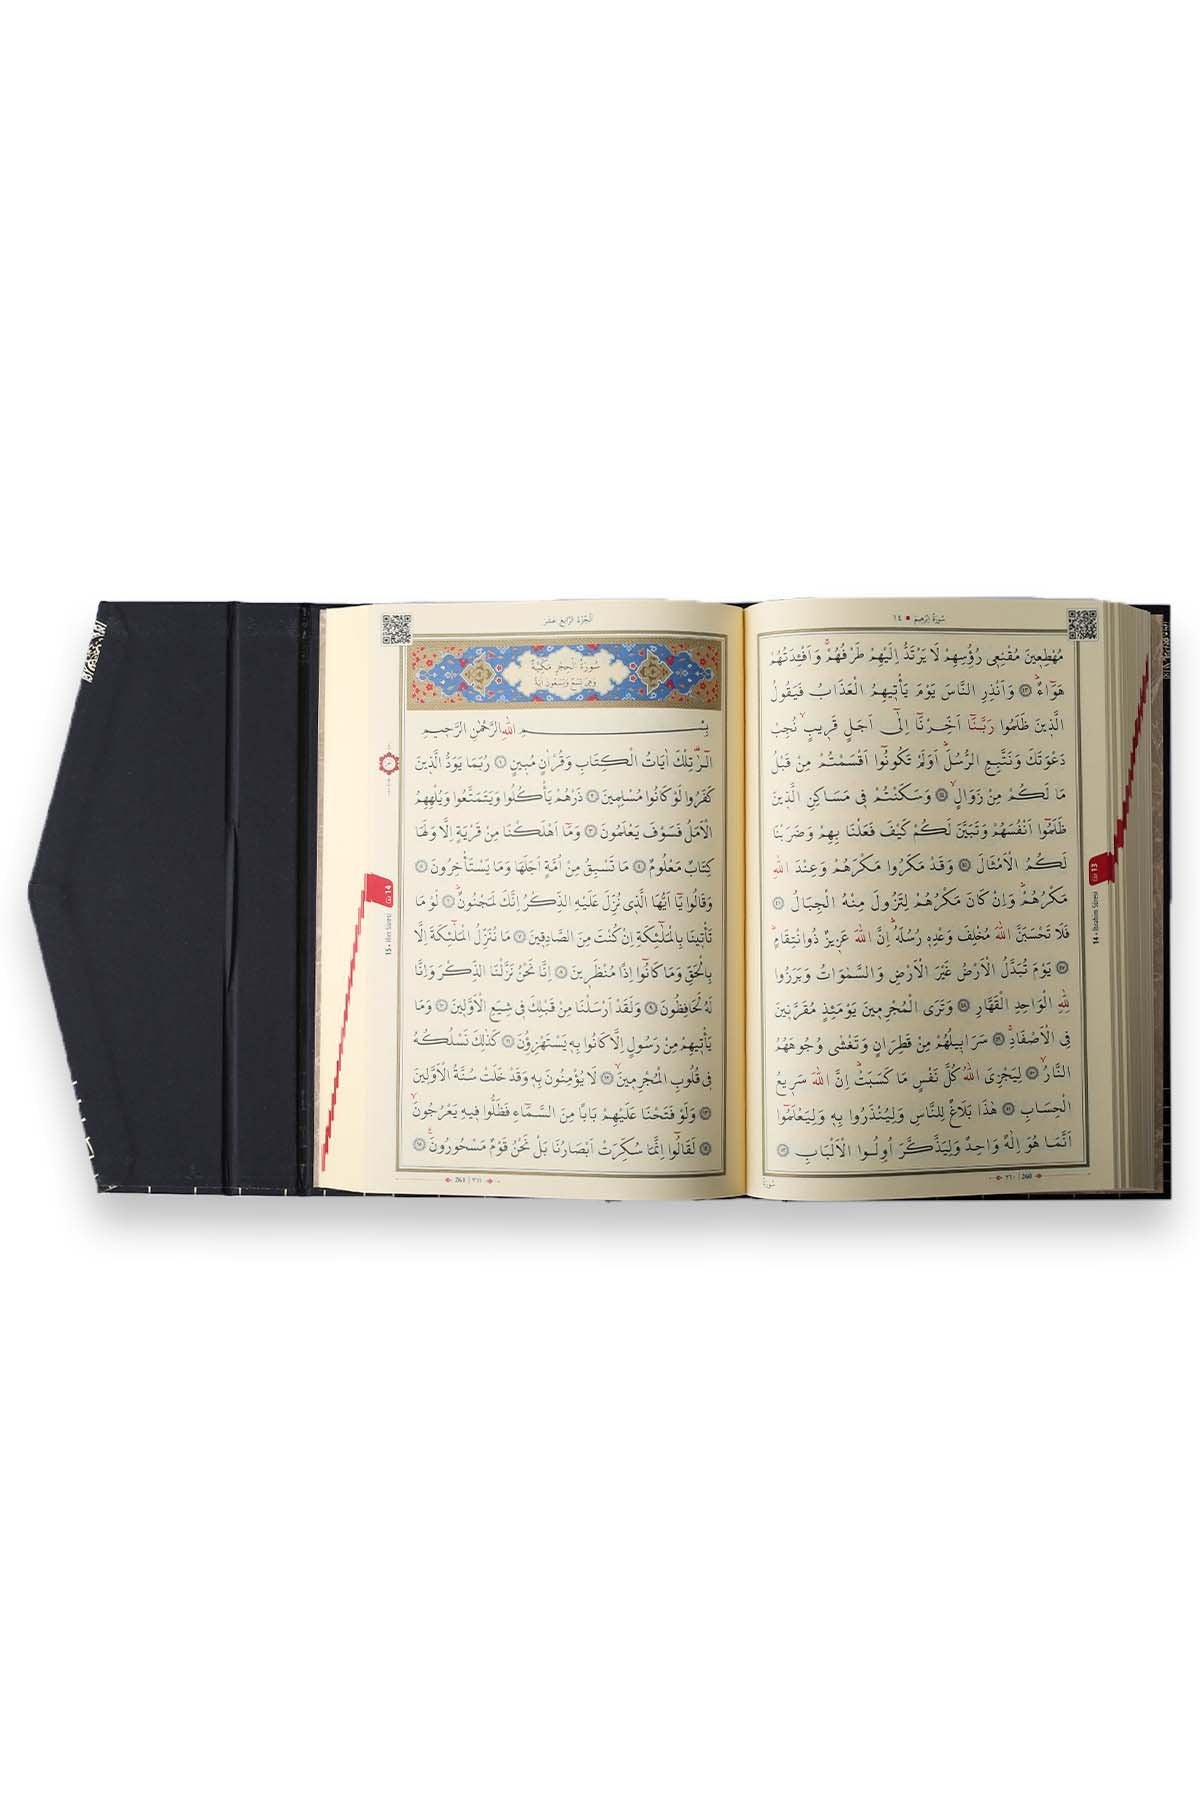 ١٤ • سُورَةُ اِبْرٰهِيمَ
مُهْطِعِينَ مُقْنِعِى رُؤُسِهِمْ لَا يَرْتَدُّ اِلَيْهِمْ طَرْفُهُمْۚ وَاَفْـِٔدَتُهُمْ
هَوَٓاءٌۜ ﴿٤٣﴾ وَاَنْذِرِ النَّاسَ يَوْمَ يَأْت۪يهِمُ الْعَذَابُ فَيَقُولُ
الَّذ۪ينَ ظَلَمُوا رَبَّنَٓا اَخِّرْنَٓا اِلٰٓى اَجَلٍ قَر۪يبٍۙ نُجِبْ
دَعْوَتَكَ وَنَتَّبِعِ الرُّسُلَۜ اَوَلَمْ تَكُونُٓوا اَقْسَمْتُمْ مِنْ قَبْلُ
مَا لَكُمْ مِنْ زَوَالٍۙ ﴿٤٤﴾ وَسَكَنْتُمْ ف۪ى مَسَاكِنِ الَّذ۪ينَ
ظَلَمُٓوا اَنْفُسَهُمْ وَتَبَيَّنَ لَكُمْ كَيْفَ فَعَلْنَا بِهِمْ وَضَرَبْنَا
لَكُمُ الْاَمْثَالَ ﴿٤٥﴾ وَقَدْ مَكَرُوا مَكْرَهُمْ وَعِنْدَ اللّٰهِ
مَكْرُهُمْۜ وَاِنْ كَانَ مَكْرُهُمْ لِتَزُولَ مِنْهُ الْجِبَالُ ﴿٤٦﴾
فَلَا تَحْسَبَنَّ اللّٰهَ مُخْلِفَ وَعْدِه۪ رُسُلَهُۜ اِنَّ اللّٰهَ عَز۪يزٌ ذُوانْتِقَامٍۜ
﴿٤٧﴾ يَوْمَ تُبَدَّلُ الْاَرْضُ غَيْرَ الْاَرْضِ وَالسَّمٰوَاتُ وَبَرَزُوا
لِلّٰهِ الْوَاحِدِ الْقَهَّارِ ﴿٤٨﴾ وَتَرَى الْمُجْرِم۪ينَ يَوْمَئِذٍ مُقَرَّن۪ينَ
فِى الْاَصْفَادِۚ ﴿٤٩﴾ سَرَاب۪يلُهُمْ مِنْ قَطِرَانٍ وَتَغْشٰى وُجُوهَهُمُ
النَّارُۙ ﴿٥٠﴾ لِيَجْزِىَ اللّٰهُ كُلَّ نَفْسٍ مَا كَسَبَتْۜ اِنَّ اللّٰهَ سَر۪يعُ
الْحِسَابِ ﴿٥١﴾ هٰذَا بَلَاغٌ لِلنَّاسِ وَلِيُنْذَرُوا بِه۪ وَلِيَعْلَمُٓوا
اَنَّمَا هُوَ اِلٰهٌ وَاحِدٌ وَلِيَذَّكَّرَ اُو۬لُوا الْاَلْبَابِ ﴿٥٢﴾
سُورَةُ
٢٦٠ | 260
13 جزء
14 • İbrahim Sûresi
اَلْجُزْءُ الرَّابِعُ عَشَرَ
سُورَةُ الْحِجْرِ مَكِّيَّةٌ
وَهِىَ تِسْعٌ وَتِسْعُونَ اٰيَةً
بِسْمِ اللّٰهِ الرَّحْمٰنِ الرَّح۪يمِ
الٓرٰ۠ تِلْكَ اٰيَاتُ الْكِتَابِ وَقُرْاٰنٍ مُب۪ينٍ ﴿١﴾ رُبَمَا يَوَدُّ الَّذ۪ينَ
كَفَرُوا لَوْ كَانُوا مُسْلِم۪ينَ ﴿٢﴾ ذَرْهُمْ يَأْكُلُوا وَيَتَمَتَّعُوا وَيُلْهِهِمُ
الْاَمَلُ فَسَوْفَ يَعْلَمُونَ ﴿٣﴾ وَمَٓا اَهْلَكْنَا مِنْ قَرْيَةٍ اِلَّا وَلَهَا
كِتَابٌ مَعْلُومٌ ﴿٤﴾ مَا تَسْبِقُ مِنْ اُمَّةٍ اَجَلَهَا وَمَا يَسْتَأْخِرُونَ ﴿٥﴾
وَقَالُوا يَٓا اَيُّهَا الَّذ۪ى نُزِّلَ عَلَيْهِ الذِّكْرُ اِنَّكَ لَمَجْنُونٌۜ ﴿٦﴾ لَوْ مَا
تَأْت۪ينَا بِالْمَلٰٓئِكَةِ اِنْ كُنْتَ مِنَ الصَّادِق۪ينَ ﴿٧﴾ مَا نُنَزِّلُ الْمَلٰٓئِكَةَ اِلَّا
بِالْحَقِّ وَمَا كَانُٓوا اِذًا مُنْظَر۪ينَ ﴿٨﴾ اِنَّا نَحْنُ نَزَّلْنَا الذِّكْرَ وَاِنَّا
لَهُ لَحَافِظُونَ ﴿٩﴾ وَلَقَدْ اَرْسَلْنَا مِنْ قَبْلِكَ ف۪ى شِيَعِ الْاَوَّل۪ينَ ﴿١٠﴾ وَمَا
يَأْت۪يهِمْ مِنْ رَسُولٍ اِلَّا كَانُوا بِه۪ يَسْتَهْزِؤُ۫نَ ﴿١١﴾ كَذٰلِكَ نَسْلُكُهُ
ف۪ى قُلُوبِ الْمُجْرِم۪ينَۙ ﴿١٢﴾ لَا يُؤْمِنُونَ بِه۪ وَقَدْ خَلَتْ سُنَّةُ الْاَوَّل۪ينَ
﴿١٣﴾ وَلَوْ فَتَحْنَا عَلَيْهِمْ بَابًا مِنَ السَّمَٓاءِ فَظَلُّوا ف۪يهِ يَعْرُجُونَۙ
﴿١٤﴾ لَقَالُٓوا اِنَّمَا سُكِّرَتْ اَبْصَارُنَا بَلْ نَحْنُ قَوْمٌ مَسْحُورُونَ۟ ﴿١٥﴾
261 | ٢٦١
14 جزء
15 • Hicr Sûresi